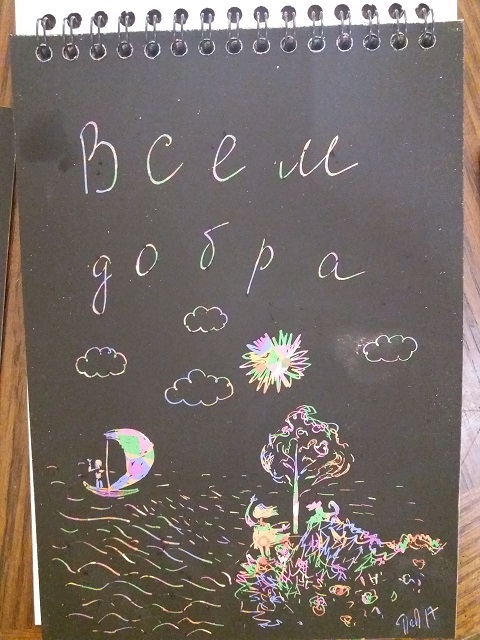 Всем
добра